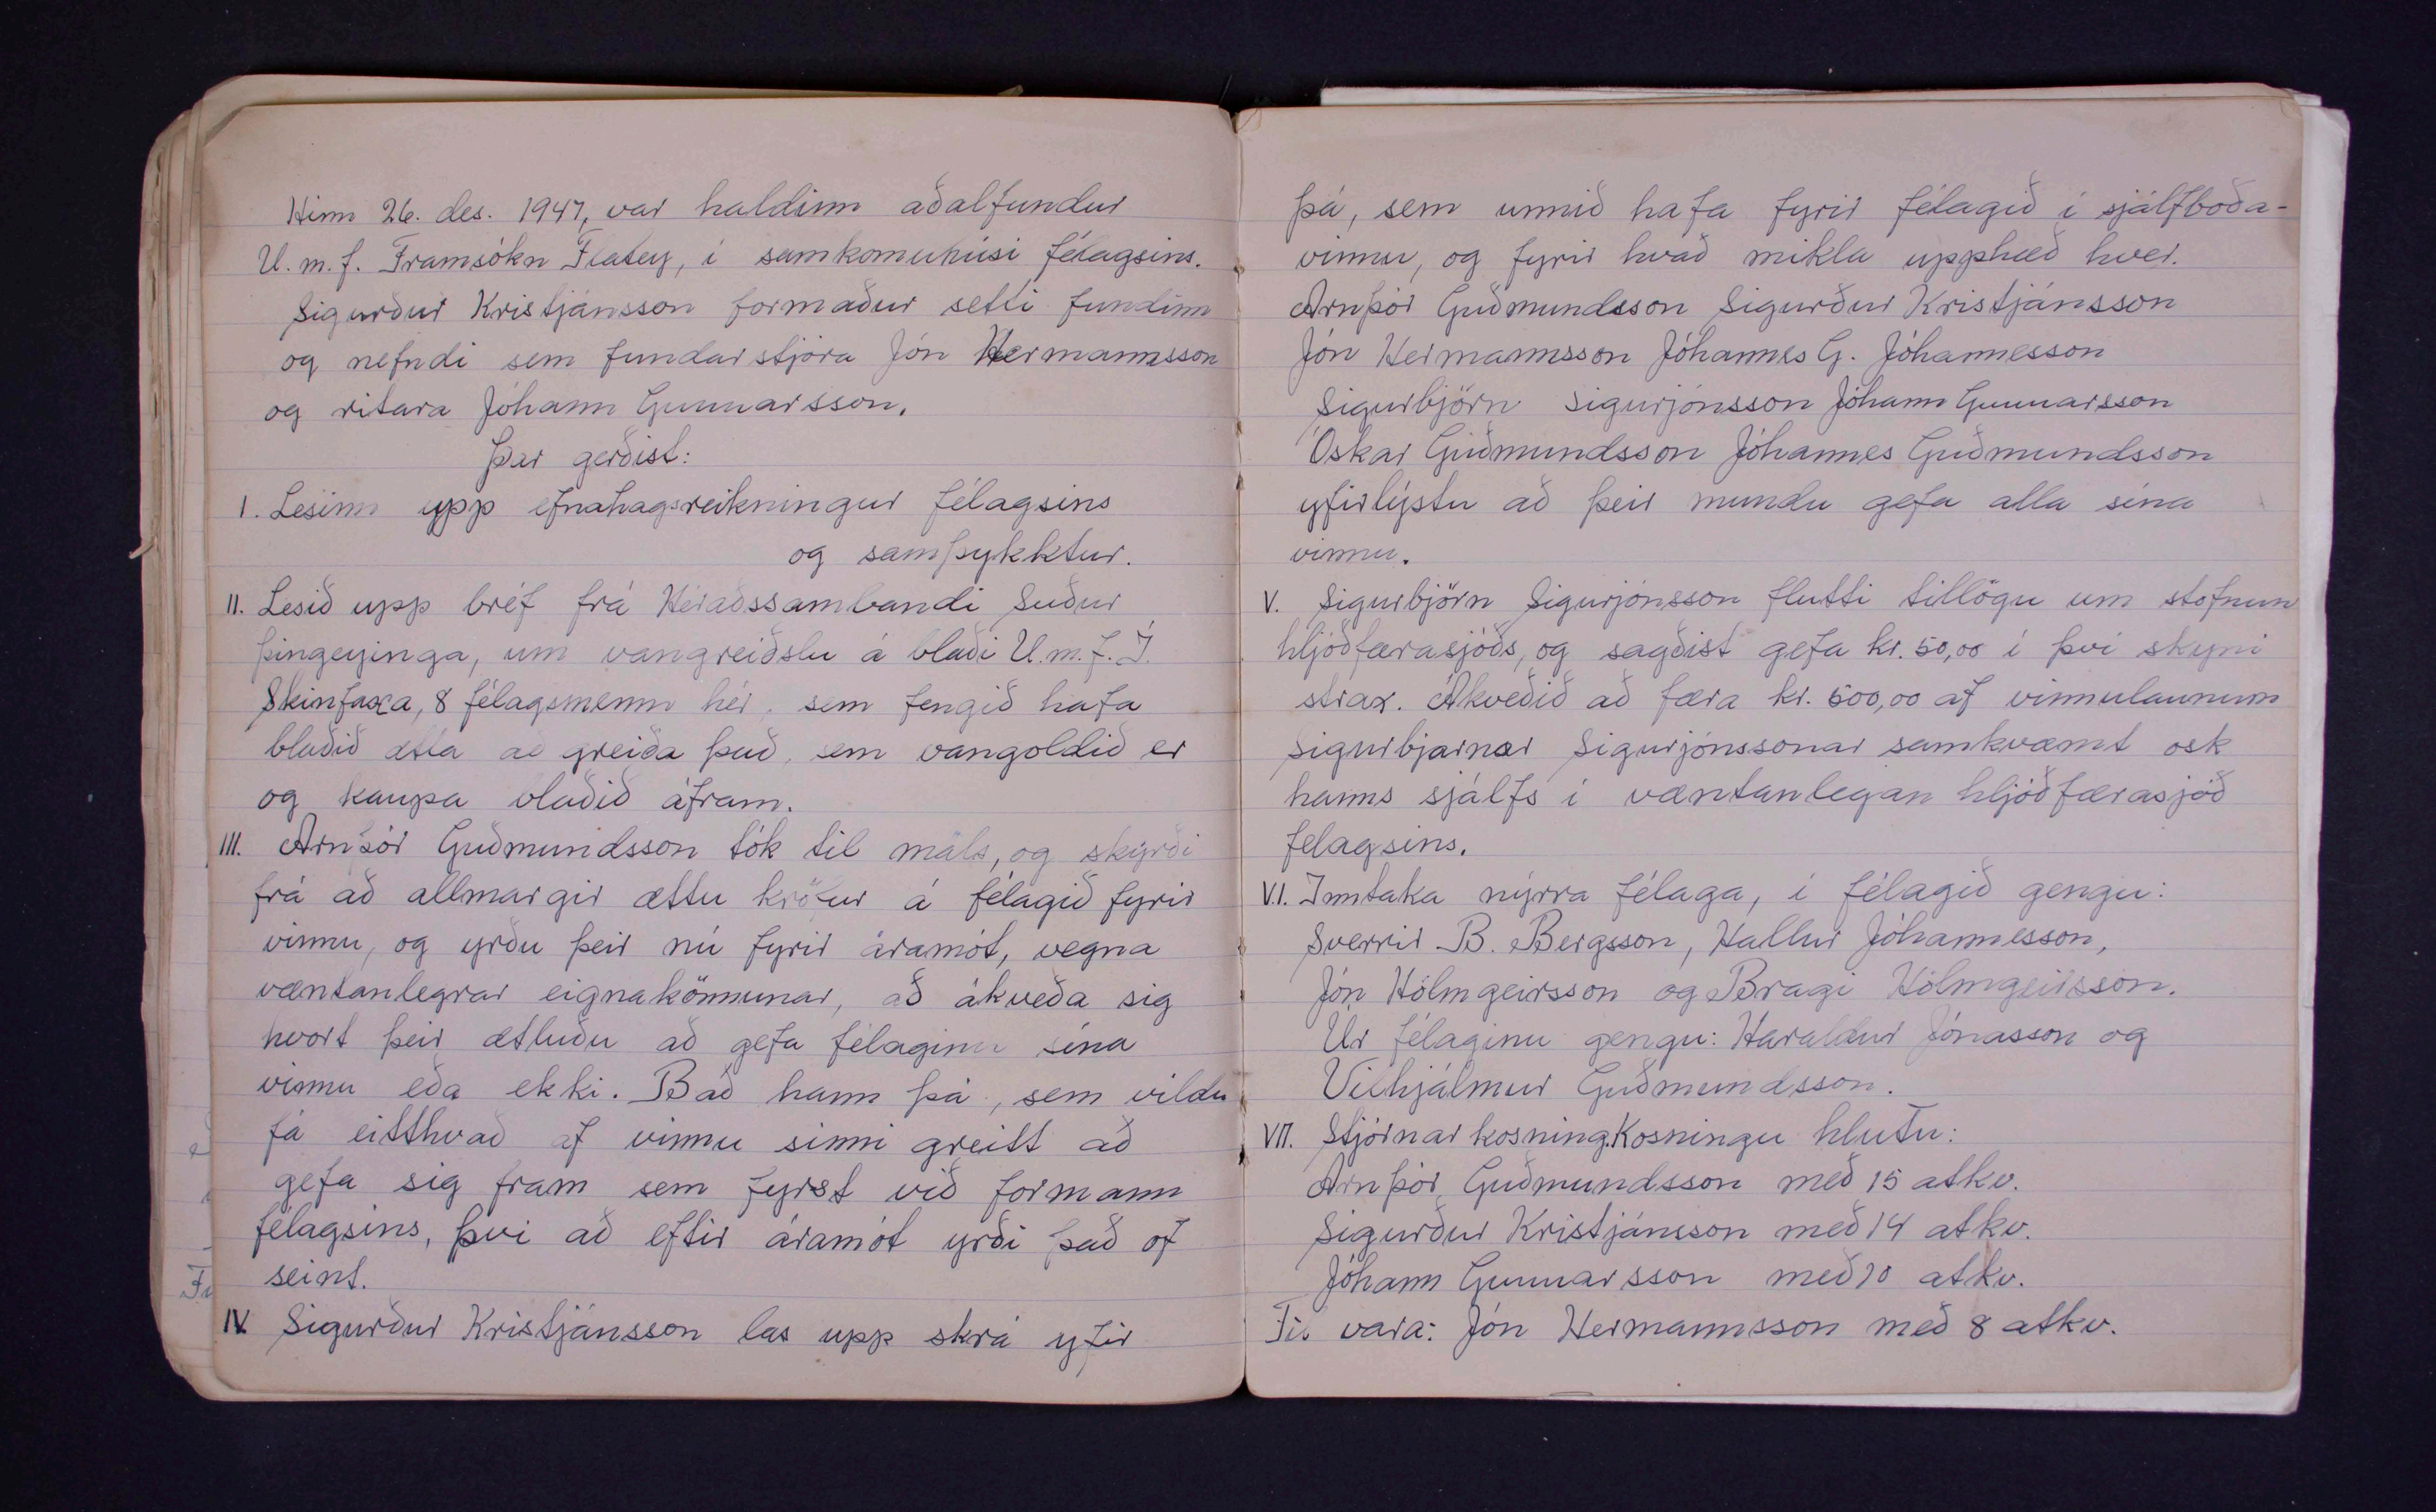 Hinn 26. des. 1947, var haldinn aðalfundur
U.m.f. Framsókn Flatey, í samkomuhúsi félagsins.
Sigurður Kristjánsson formaður setti fundinn
og nefndi sem fundarstjóra Jón Hermannsson
og ritara Jóhann Gunnarsson.
Þar gerðist:
I. Lesinn upp efnahagsreikningur félagsins
og samþykktur.
II. Lesið upp bréf frá Héraðssambandi Suður
þingeyinga, um vangreiðslu á blaði U.m.f.Í.
Skinfaxa, 8 félagsmenn hér, sem fengið hafa
blaðið ætla að greiða það, sem vangoldið er
og kaupa blaðið áfram.
III. Arnþór Guðmundsson tók til máls, og skýrði
frá að allmargir ættu kröfur á félagið fyrir
vinnu, og yrðu þeir nú fyrir áramót, vegna
væntanlegrar eignakönnunar, að ákveða sig
hvort þeir ætluðu að gefa félaginu sína
vinnu eða ekki. Bað hann þá, sem vildu
fá eitthvað af vinnu sinni greitt að
gefa sig fram sem fyrst við formann
félagsins, því að eftir áramót yrði það of
seint.
IV. Sigurður Kristjánsson las upp skrá yfir
þá, sem unnið hafa fyrir félagið í sjálfboða-
vinnu, og fyrir hvað mikla upphæð hver.
Arnþór Guðmundsson Sigurður Kristjánsson
Jón Hermannsson Jóhannes G. Jóhannesson
Sigurbjörn Sigurjónsson Jóhann Gunnarsson
Óskar Guðmundsson Jóhannes Guðmundsson
yfirlýstu að þeir mundu gefa alla sína
vinnu.
V. Sigurbjörn Sigurjónsson flutti tillögu um stofnun
hljóðfærasjóðs, og sagðist gefa kr. 50,00 í því skyni
strax. Ákveðið að færa kr. 500,00 af vinnulaunum
Sigurbjarnar Sigurjónssonar samkvæmt osk
hanns sjálfs í væntanlegan hljóðfærasjóð
felagsins.
V.I. Inntaka nýrra félaga, í félagið gengu:
Sverrir B. Bergsson, Hallur Jóhannesson,
Jón Hólmgeirsson og Bragi Hólmgeirsson.
Úr félaginu gengu: Haraldur Jónasson og
Vilhjálmur Guðmundsson.
VII. Stjórnarkosning. Kosningu hlutu:
Arnþór Guðmundsson með 15 atkv.
Sigurður Kristjánsson með 14 atkv.
Jóhann Gunnarsson með 10 atkv.
Til vara: Jón Hermannsson með 8 atkv.